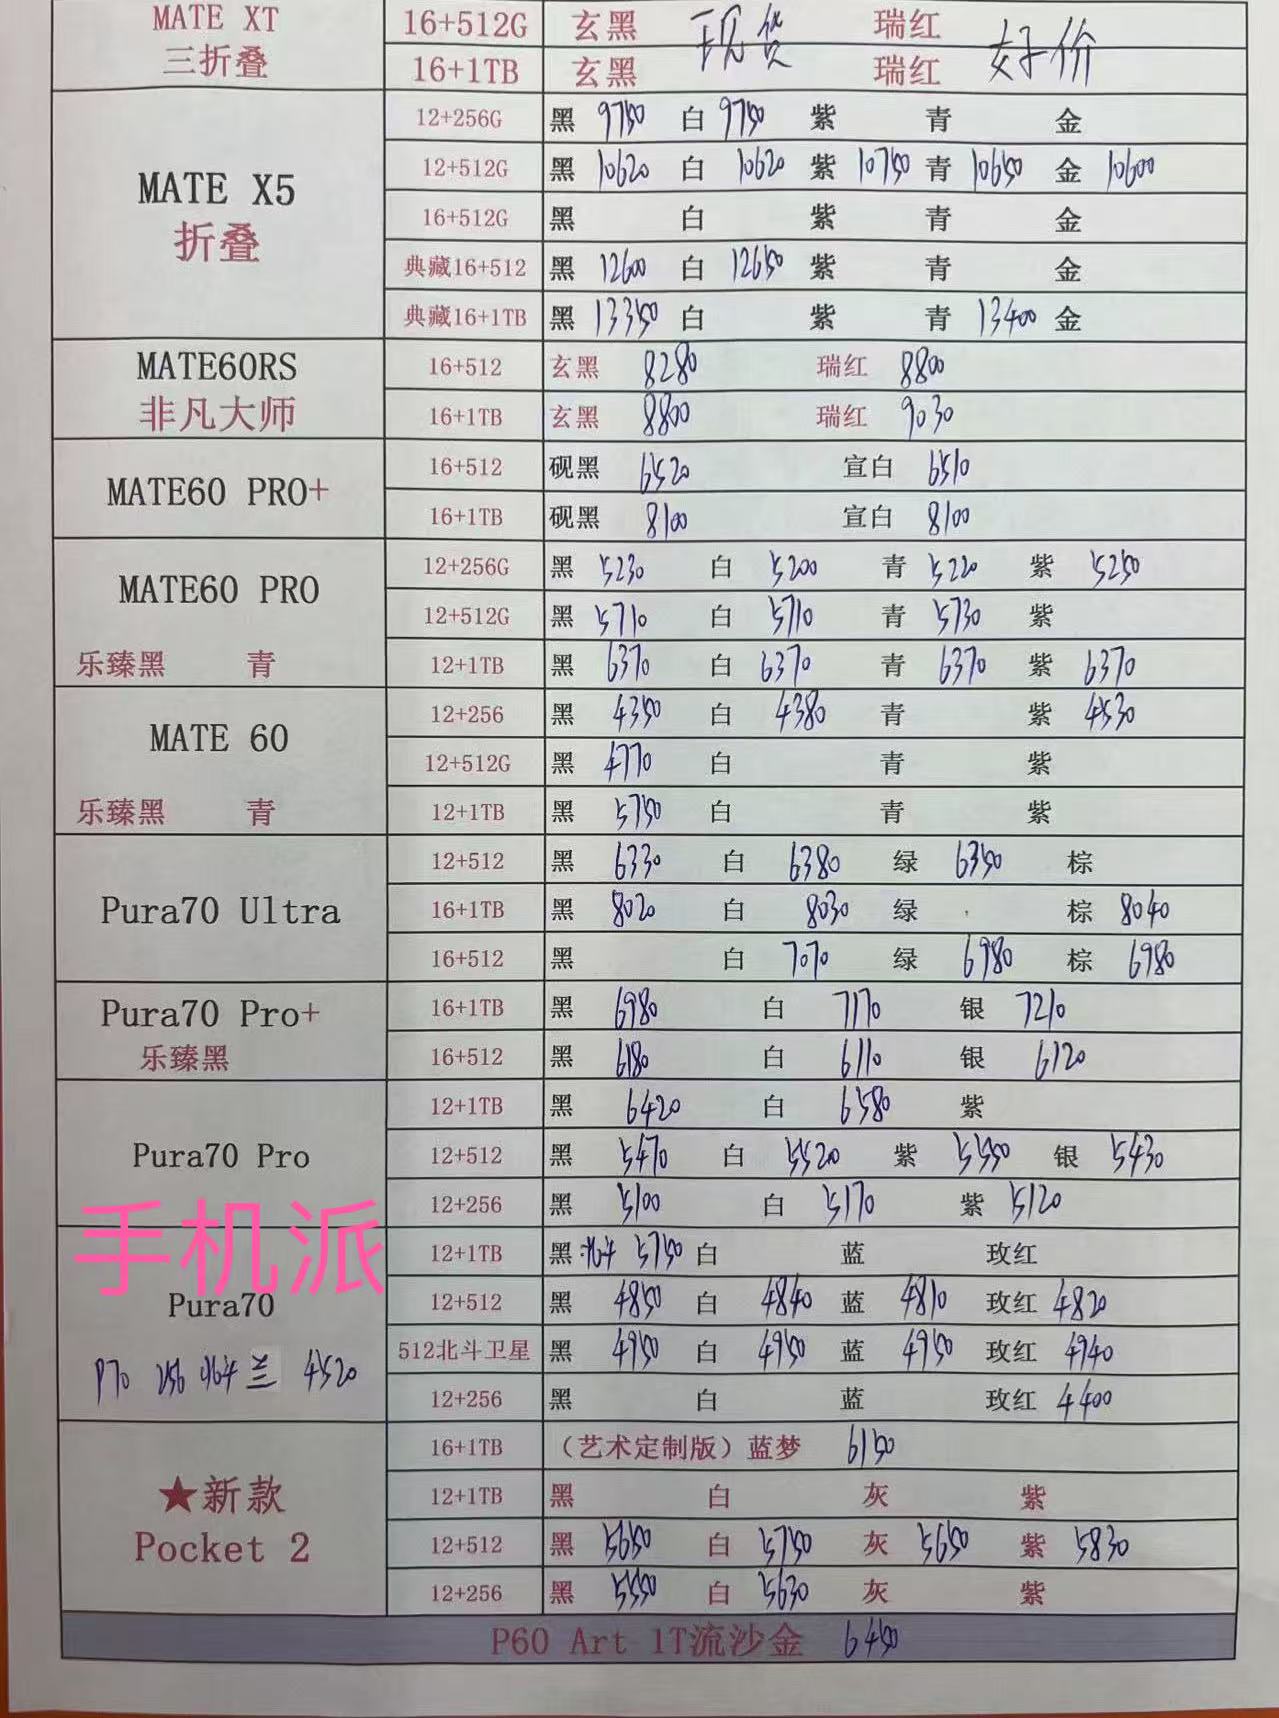 MATE XT 16+512G 玄黑 现货 瑞红 好价
三折叠 16+1TB 玄黑 瑞红
12+256G 黑 9750 白 9750 紫 青 金
MATE X5 12+512G 黑 10620 白 10620 紫 10750 青 10650 金 10600
折叠 16+512G 黑 白 紫 青 金
典藏16+512 黑 12600 白 12650 紫 青 金
典藏16+1TB 黑 13350 白 紫 青 13400 金
MATE60RS 16+512 玄黑 8280 瑞红 8800
非凡大师 16+1TB 玄黑 8800 瑞红 9030
MATE60 PRO+ 16+512 砚黑 6520 宣白 6510
16+1TB 砚黑 8100 宣白 8100
MATE60 PRO 12+256G 黑 5230 白 5200 青 5220 紫 5250
12+512G 黑 5710 白 5710 青 5730 紫
乐臻黑 青 12+1TB 黑 6370 白 6370 青 6370 紫 6370
MATE 60 12+256 黑 4350 白 4380 青 紫 4530
12+512G 黑 4770 白 青 紫
乐臻黑 青 12+1TB 黑 5750 白 青 紫
12+512 黑 6330 白 6380 绿 6350 棕
Pura70 Ultra 16+1TB 黑 8020 白 8030 绿 棕 8040
16+512 黑 白 7070 绿 6980 棕 6980
Pura70 Pro+ 16+1TB 黑 6980 白 7170 银 7210
乐臻黑 16+512 黑 6180 白 6110 银 6120
12+1TB 黑 6420 白 6580 紫
Pura70 Pro 12+512 黑 5470 白 5520 紫 5550 银 5430
12+256 黑 5100 白 5170 紫 5120
手机派
12+1TB 黑 北斗 5750 白 蓝 玫红
Pura70 12+512 黑 4850 白 4840 蓝 4810 玫红 4820
512北斗卫星 黑 4950 白 4950 蓝 4950 玫红 4940
P70 256 北斗 兰 4520
12+256 黑 白 蓝 玫红 4400
16+1TB （艺术定制版）蓝梦 6150
★新款 12+1TB 黑 白 灰 紫
Pocket 2 12+512 黑 5650 白 5750 灰 5650 紫 5830
12+256 黑 5550 白 5630 灰 紫
P60 Art 1T流沙金 6450